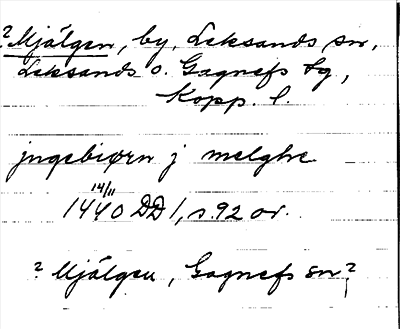 ? Mjälgen, by, Leksands sn,
Leksands o. Gagnefs tg,
Kopp. l.
jngebiørn j melghe
14/11
1440 DD 1, s. 92 or.
? Mjälgen, Gagnefs sn?